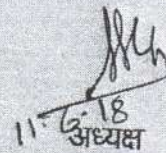 11.6.18
अध्यक्ष